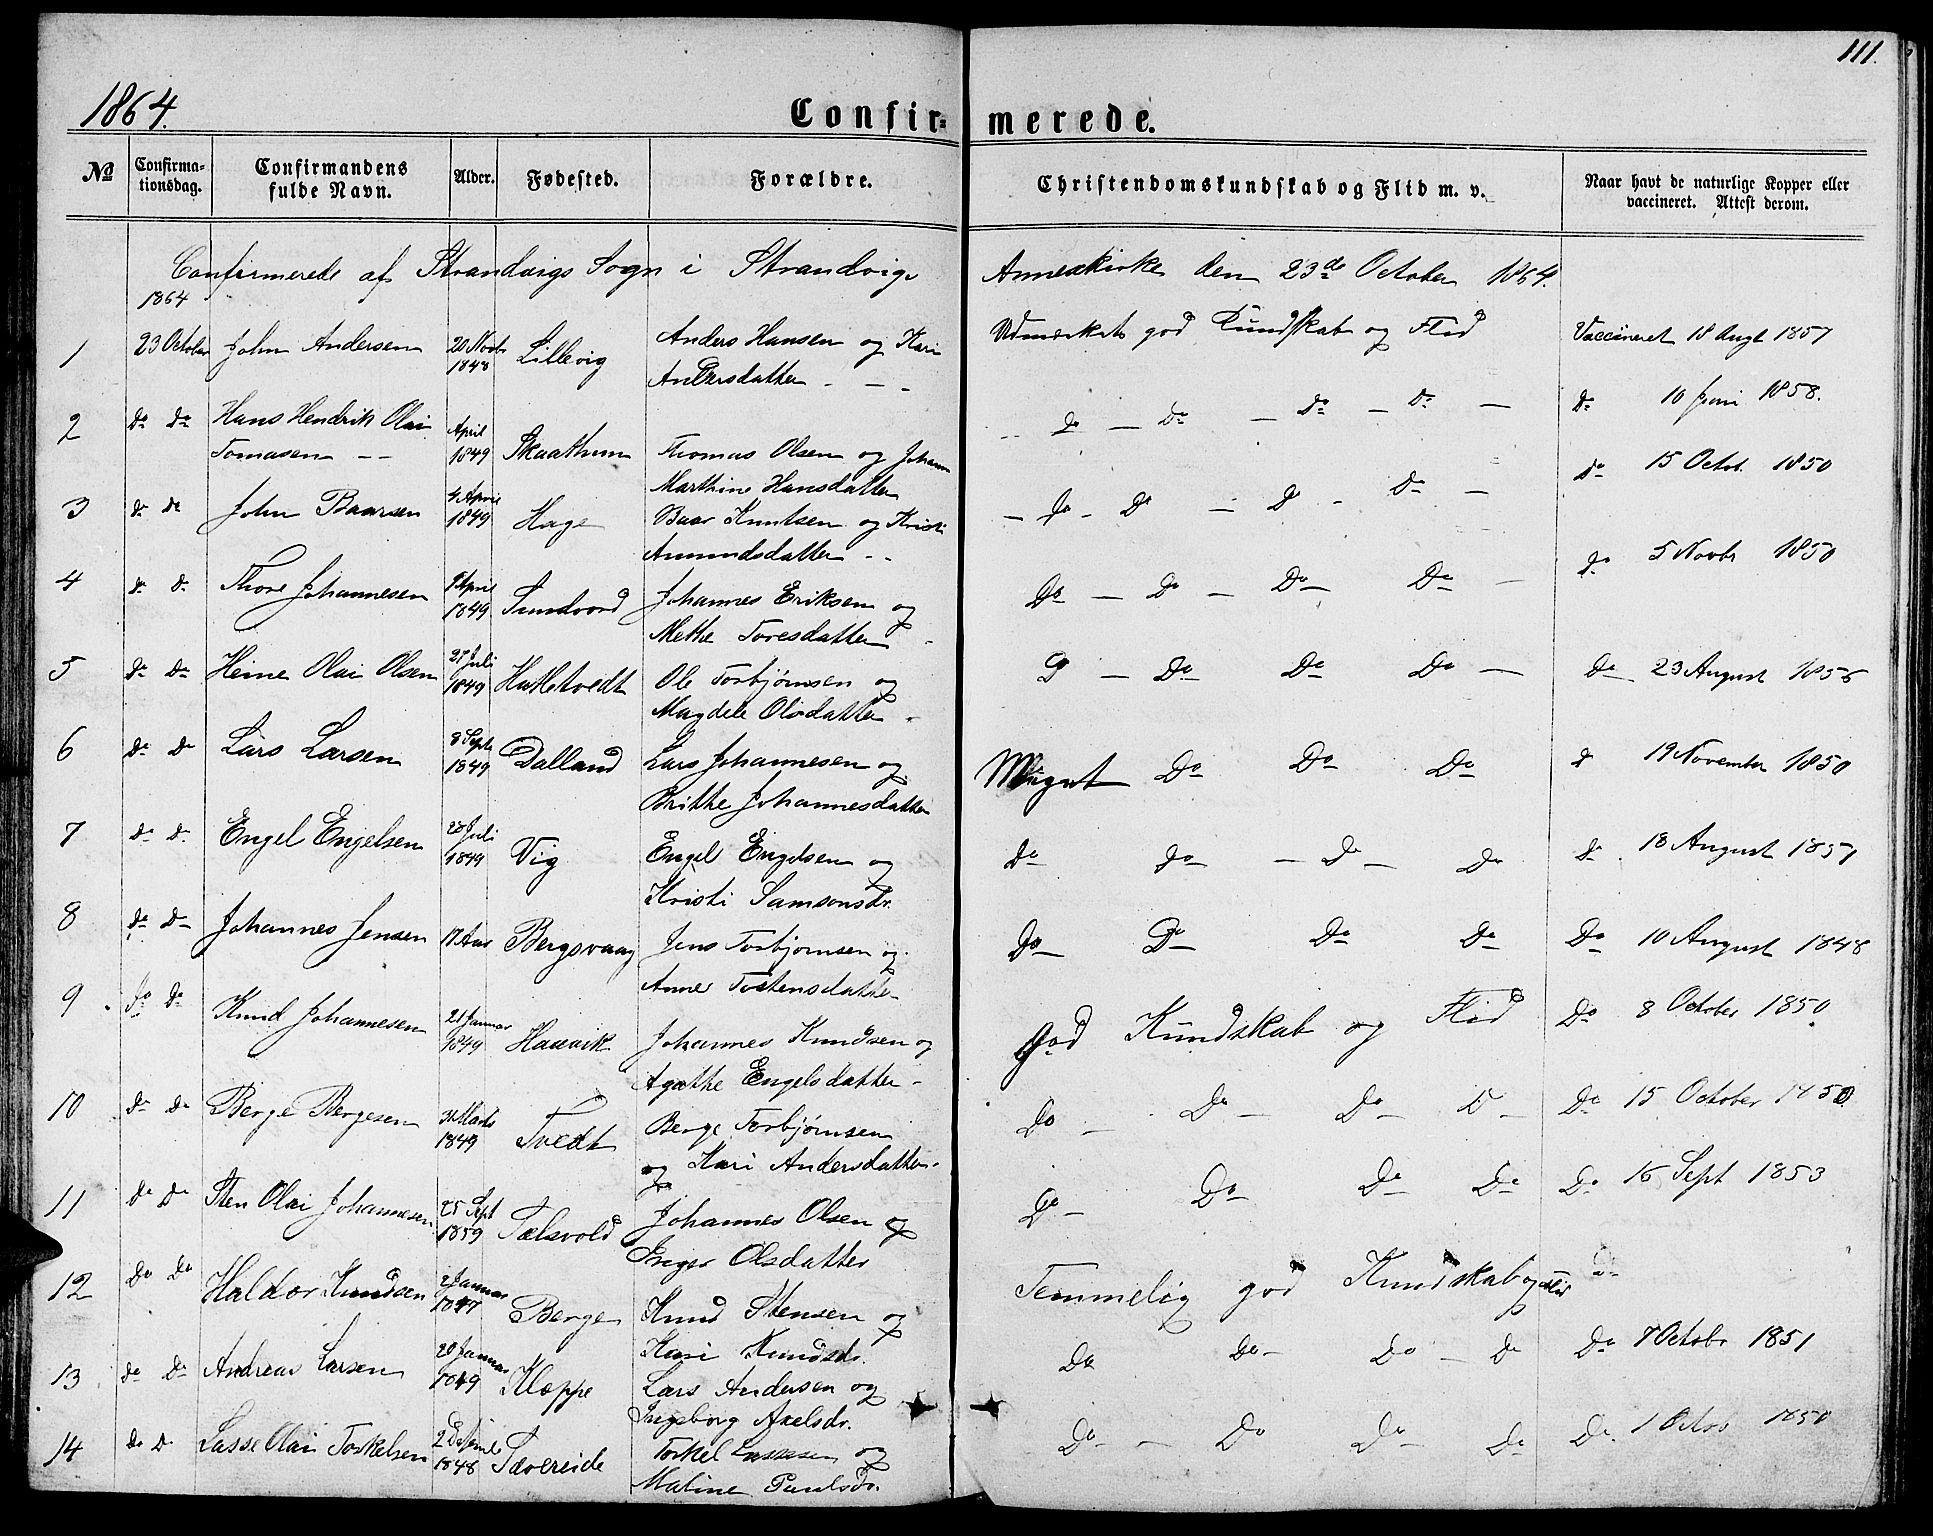 111.
1864.
Confirmerede.
No
Confirmationsdag.
Confirmandens fulde Navn.
Alder.
Fødested.
Forældre.
Christendomskundskab og Flid m. v.
Naar havt de naturlige Kopper eller vaccineret. Attest derom.
Confirmerede af Strandvigs Sogn i Strandvigs Annexkirke den 23de October 1864.
1864
1 23 October John Andersen 20 Novbr 1848 Lillevig Anders Hansen og Kari Andersdatter - - - Udmærket god Kundskab og Flid Vaccineret 18 Augt 1857
2 Do Do Hans Hendrik Olai Tomasen - - April 1849 Skaathun Thomas Olsen og Johanne Marthine Hansdatter - Do - Do - Do - Do - Do 10 Juni 1858.
3 Do Do John Baarsen 4 April 1849 Hage Baar Knutsen og Kristi Amundsdatter - - - Do - Do - Do - Do - Do 15 Octob. 1850
4 Do Do Thore Johannesen April 1849 Sundvord Johannes Eriksen og Methe Toresdatter - Do - Do - Do - Do - Do 5 Novbr 1850
5 Do Do Heine Olai Olsen 27 Juli 1849 Hatletvedt Ole Torbjørnsen og Magdele Olsdatter - Do - Do Do Do - Do 23 August 1856
6 Do Do Lars Larsen 8 Septr 1849 Dalland Lars Johannesen og Britthe Johannesdatter Meget Do Do Do Do 19 November 1850
7 Do Do Engel Engelsen 28 Juli 1849 Vig Engel Engelsen og Kristi Samsonsdr. Do Do - Do - Do Do 18 August 1857
8 Do Do Johannes Jensen 17 Aar Bergsvaag Jens Torbjørnsen og Anne Tostensdatter Do Do Do Do Do 10 August 1848
9 Do Do Knud Johannesen 21 Januar 1849 Haavik Johannes Knudsen og Agathe Engelsdatter - God Kundskab og Flid Do 8 October 1850
10 Do Do Berge Bergesen 31 Marts 1849 Tvedt Berge Torbjørnsen og Kari Andersdatter - Do - Do - Do - Do - Do 15 October 1850
11 Do Do Sten Olai Johannesen 25 Sept 1859 Tælsvold Johannes Olsen og Inger Olsdatter Do - Do Do Do Do 16 Sept 1853
12 Do Do Haldor Knudsen 2 Januar 1847 Berge Knud Stensen og Kari Knudsdr. Temmelig god Kundskab og Flid Do
13 Do Do Andreas Larsen 20 Januar 1849 Kloppe Lars Andersen og Ingeborg Axelsdr. Do Do - Do - Do Do 7 Octobr 1851
14 Do Do Lasse Olai Torkelsen 1848 Sævereide Torkel Lassesen og Maline Paulsdr. Do - Do Do - Do Do 1 Octor 1850